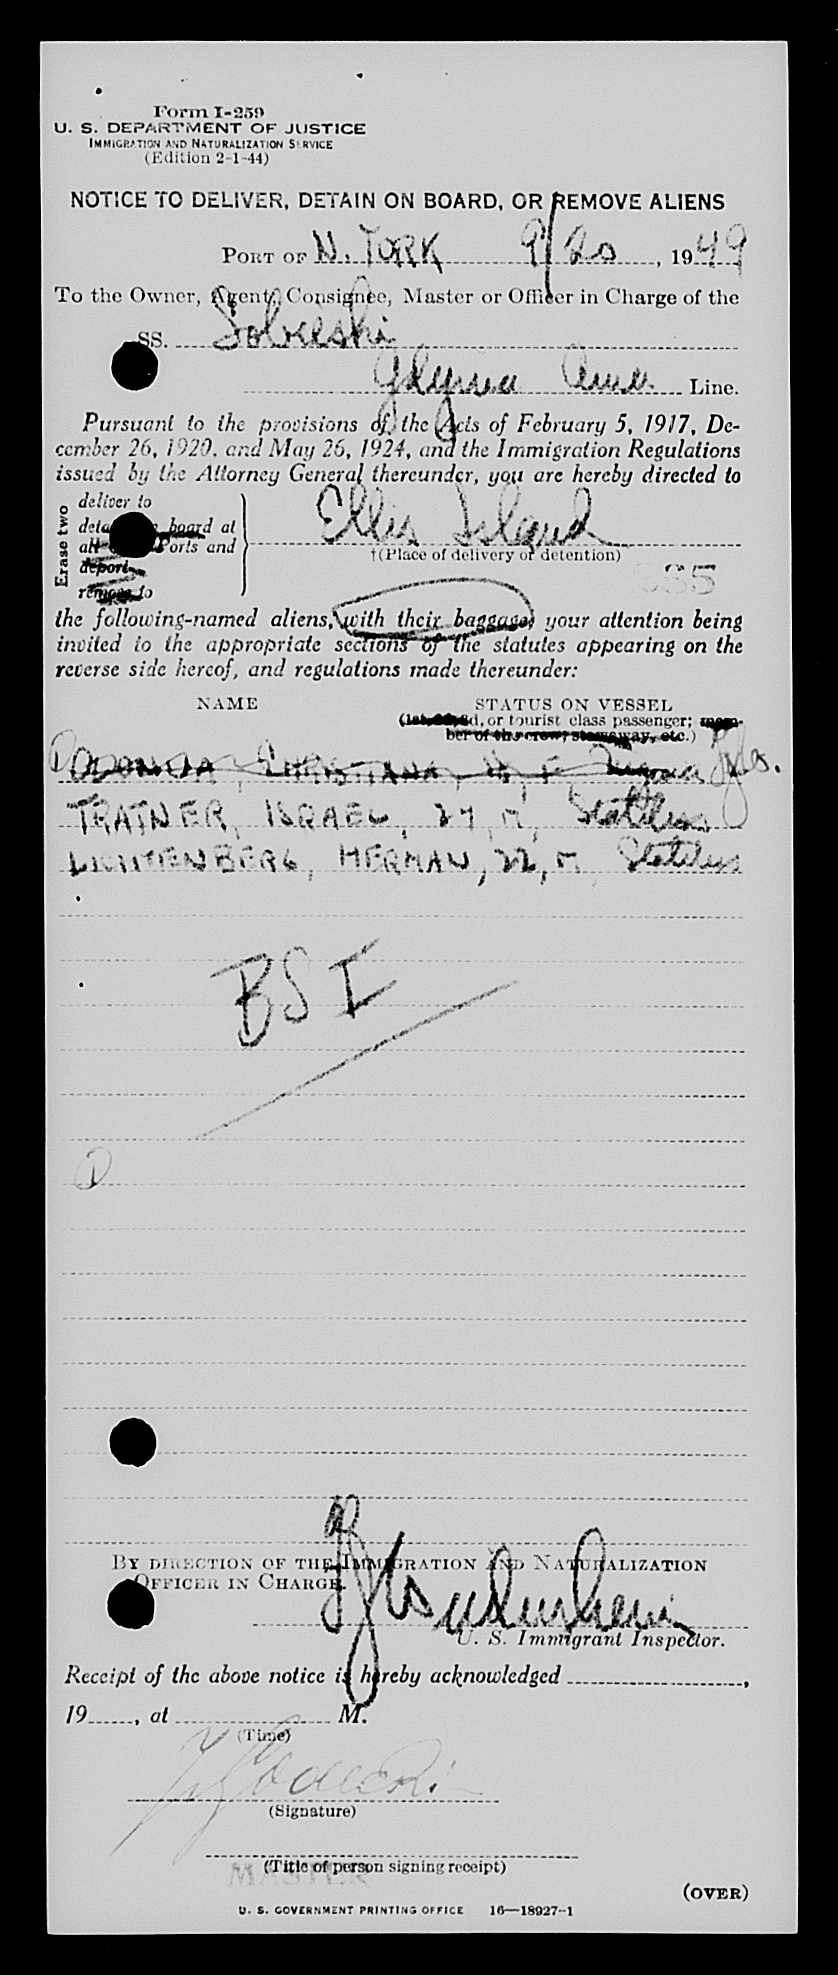 Form I-259
U. S. DEPARTMENT OF JUSTICE
IMMIGRATION AND NATURALIZATION SERVICE
(Edition 2-1-44)
NOTICE TO DELIVER, DETAIN ON BOARD, OR REMOVE ALIENS
PORT OF N. YORK 9/20, 1949
To the Owner, Agent, Consignee, Master or Officer in Charge of the
SS. Sobieski
Gdynia Amer. Line.
Pursuant to the provisions of the Acts of February 5, 1917, De-
cember 26, 1920, and May 26, 1924, and the Immigration Regulations
issued by the Attorney General thereunder, you are hereby directed to
Erase two
deliver to
board at
Ports and
deport
remove to
Ellis Island
†(Place of delivery or detention)
the following-named aliens, with their baggage, your attention being
invited to the appropriate sections of the statutes appearing on the
reverse side hereof, and regulations made thereunder:
NAME STATUS ON VESSEL
(1st, 2d, 3d, or tourist class passenger; mem-
ber of the crew, stowaway, etc.)
TRATNER, ISRAEL, 27, M, Stateless
LICHTENBERG, HERMAN, 22, M, Stateless
BSI
1
BY DIRECTION OF THE IMMIGRATION AND NATURALIZATION
OFFICER IN CHARGE.
U. S. Immigrant Inspector.
Receipt of the above notice is hereby acknowledged ,
19 , at M.
(Time)
(Signature)
MASTER
(Title of person signing receipt)
(OVER)
U. S. GOVERNMENT PRINTING OFFICE 16—18927-1